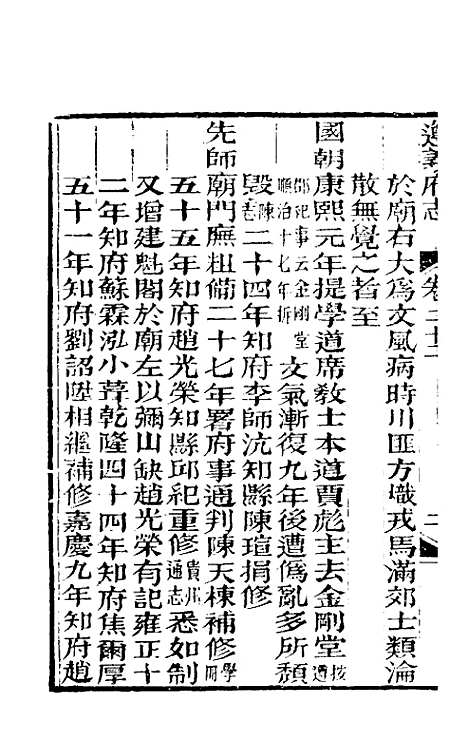 遵義府志 卷二十二 二
於廟右大爲文風病時川匪方熾戎馬滿郊士類淪
散無覺之者至
國朝康熙元年提學道席教士本道賈彪主去金剛堂按遵
郡紀事云金剛堂
順治十七年拆文氣漸復九年後遭僞亂多所頹
毀陳志二十四年知府李師沆知縣陳瑄捐修
先師廟門廡粗備二十七年署府事通判陳天棟補修學冊
五十五年知府趙光榮知縣邱紀重修貴州通志悉如制
又增建魁閣於廟左以彌山缺趙光榮有記雍正十
二年知府蘇霖泓小葺乾隆四十四年知府焦爾厚
五十一年知府劉詔陞相繼補修嘉慶九年知府趙